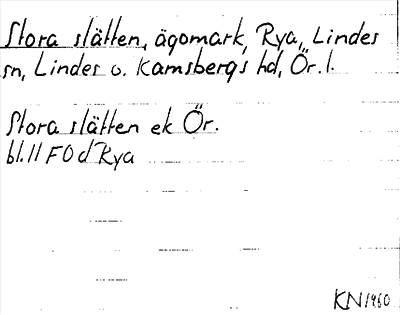 Stora slätten, ägomark, Rya, Lindes
sn, Lindes o. Ramsbergs hd, Ör. l.
Stora slätten ek Ör.
bl. 11 F 0 d Rya
KN 1960